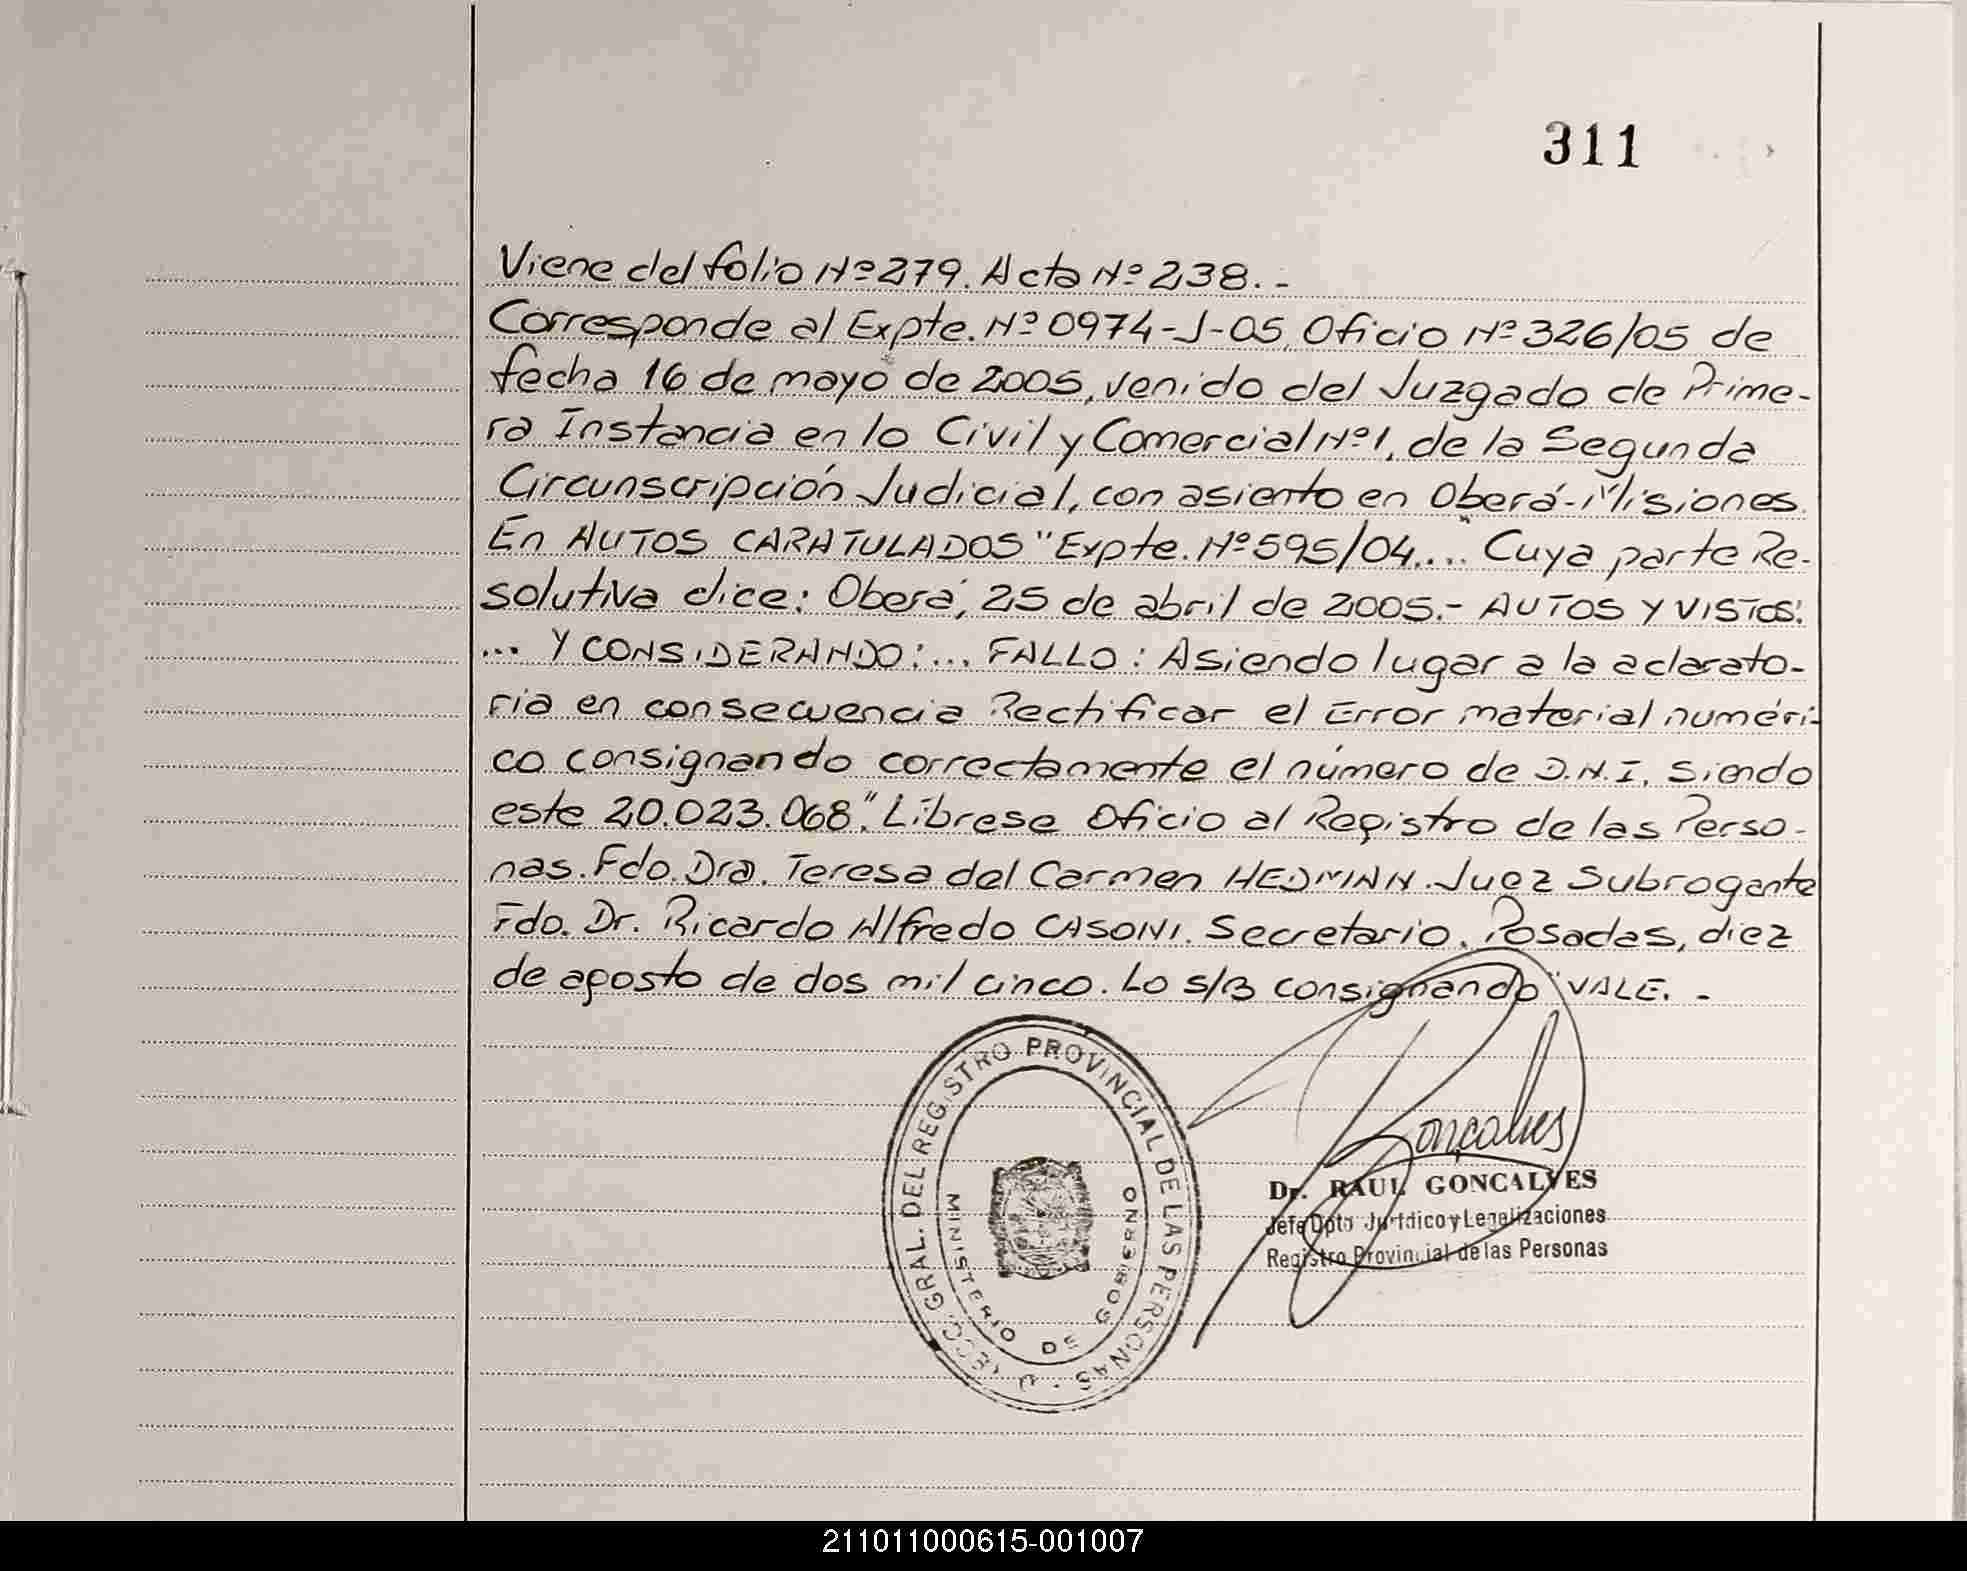 311
Viene del folio Nº 279. Acta Nº 238.-
Corresponde al Expte. Nº 0974-J-05, Oficio Nº 326/05 de
fecha 16 de mayo de 2005, venido del Juzgado de Prime-
ra Instancia en lo Civil y Comercial Nº 1, de la Segunda
Circunscripción Judicial, con asiento en Oberá-Misiones.
En AUTOS CARATULADOS "Expte. Nº 595/04...." Cuya parte Re-
solutiva dice: Oberá, 25 de abril de 2005.- AUTOS Y VISTOS:
... Y CONSIDERANDO:... FALLO: Asiendo lugar a la aclarato-
ria en consecuencia Rectificar el Error material numéri-
co consignando correctamente el número de D.N.I. siendo
este 20.023.068". Librese Oficio al Registro de las Perso-
nas. Fdo. Dra. Teresa del Carmen HEDMAN. Juez Subrogante
Fdo. Dr. Ricardo Alfredo CASONI. Secretario. Posadas, diez
de agosto de dos mil cinco. Lo s/B consignando "VALE.-
GRAL. DEL REGISTRO PROVINCIAL DE LAS PERSONAS
MINISTERIO DE GOBIERNO
Gonçalves
Dr. RAUL GONCALVES
Jefe Dpto. Jurídico y Legalizaciones
Registro Provincial de las Personas
211011000615-001007